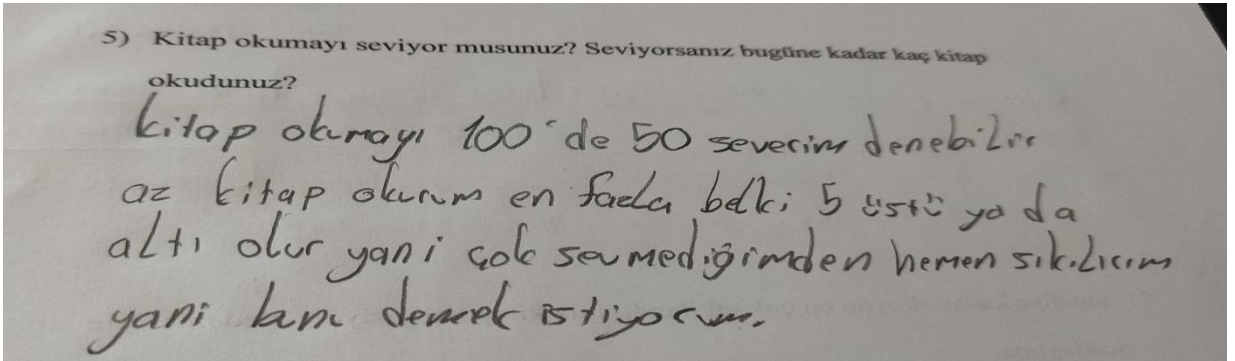 5) Kitap okumayı seviyor musunuz? Seviyorsanız bugüne kadar kaç kitap
okudunuz?
kitap okumayı 100'de 50 severim denebilir
az kitap okurum en fazla belki 5 üstü ya da
altı olur yani çok sevmediğimden hemen sıkılırım
yani bunu demek istiyorum.